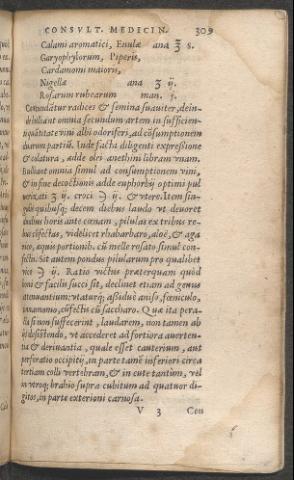 CONSVLT. MEDECIN. 309
Calami aromatici, Enulæ ana ℥ s.
Garyophylorum, Piperis,
Cardamomi maioris,
Nigellæ ana ʒ ij.
Rosarum rubearum man. j.
Contundātur radices & semina suauiter, dein-
de bulliant omnia secundum artem in sufficien-
ti quātitate vini albi odoriferi, ad cōsumptionem
duarum partiū. Inde facta diligenti expressione
& colatura, adde olei anethini libram vnam.
Bulliant omnia simul ad consumptionem vini,
& in fine decoctionis adde euphorbij optimi pul
verizati ʒ ij. croci ℈ ij. & vtere. Item sin-
gulis quibusq; decem diebus laudo vt deuoret
duabus horis ante cœnam, pilulas ex tribus re-
bus cōfectas, videlicet rhabarbaro, aloë, & aga
rico, æquis portionib. cū melle rosato simul con-
fectis. Sit autem pondus pilularum pro qualibet
vice ℈ ij. Ratio victus præterquam quòd
boni & facilis succi sit, declinet etiam ad genus
attenuantium: vtaturq; assiduè aniso, fœniculo,
cinnamomo, cūfectis cū saccharo. Quæ ita pera-
cta si non suffecerint, laudarem, non tamen ab
ijs desistendo, vt accederet ad fortiora auerten-
tia & deriuantia, quale esset cauterium, aut
perforatio occipitij, in parte tamē inferiori circa
tertiam colli vertebram, & in cute tantùm, vel
in vtroq; brahio supra cubitum ad quatuor di-
gitos, in parte exteriori carnosa.
V 3 Con